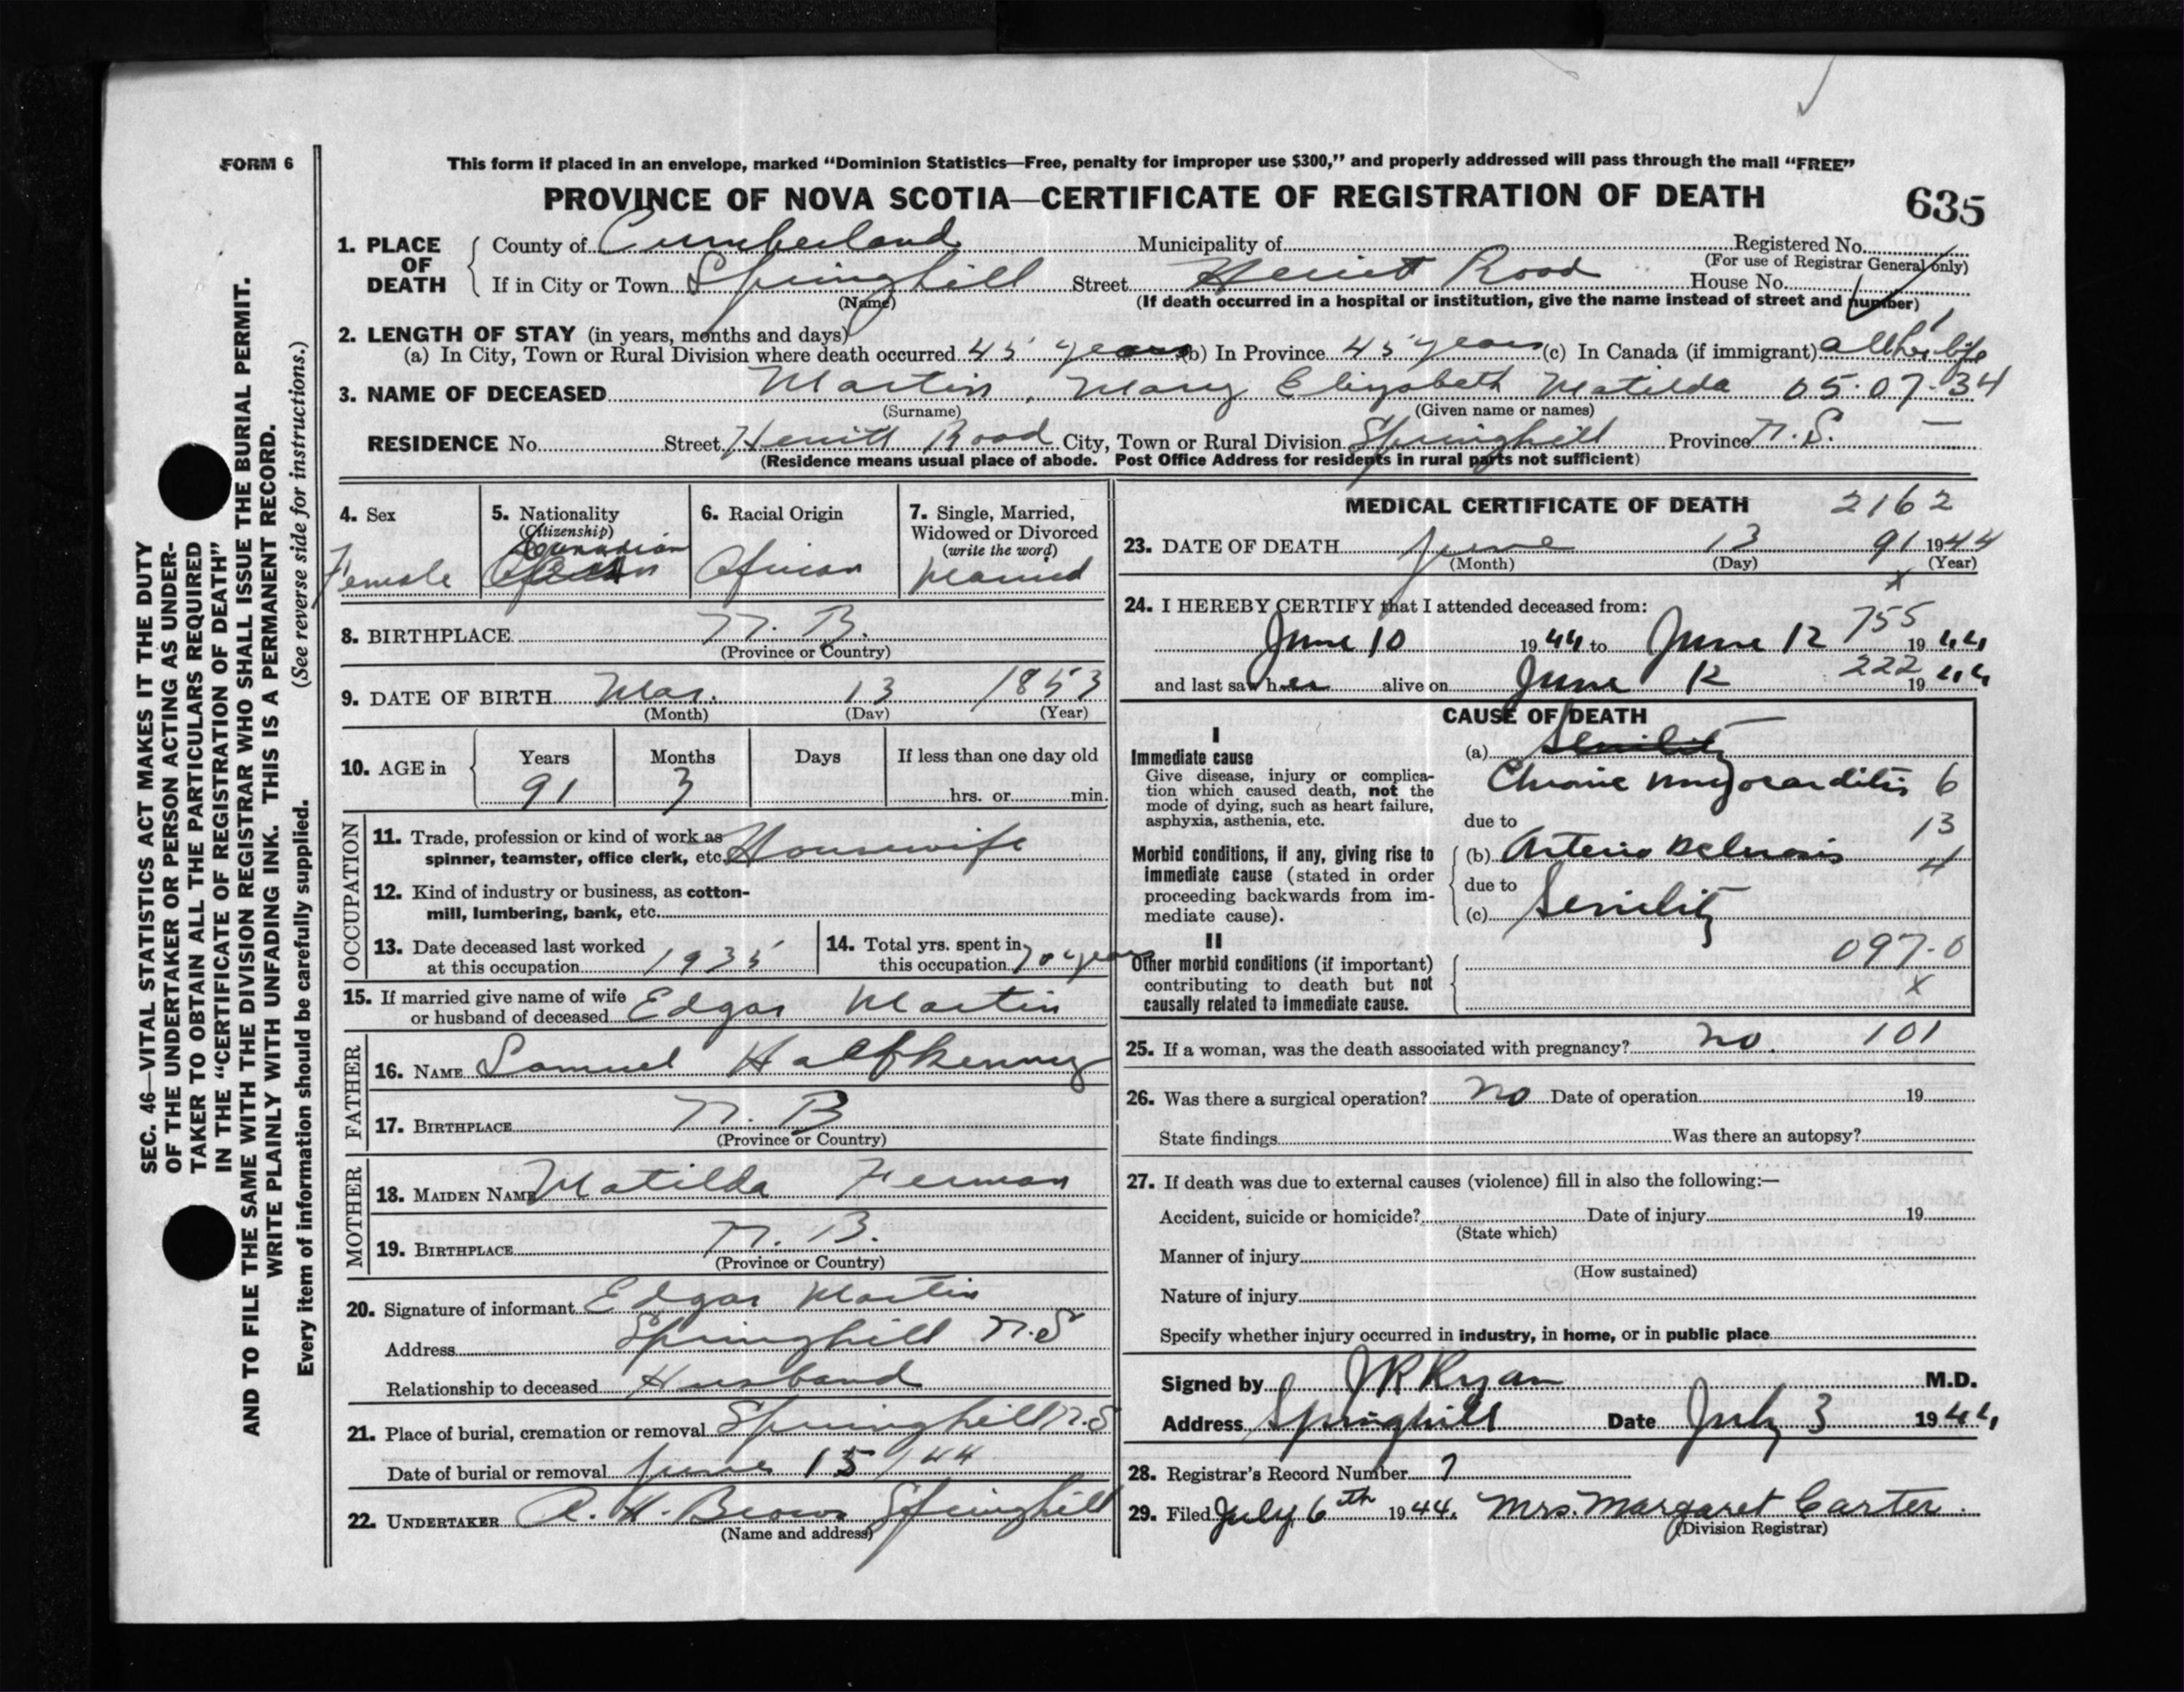 FORM 6
This form if placed in an envelope, marked “Dominion Statistics—Free, penalty for improper use $300,” and properly addressed will pass through the mail “FREE”
PROVINCE OF NOVA SCOTIA—CERTIFICATE OF REGISTRATION OF DEATH
635
SEC. 46—VITAL STATISTICS ACT MAKES IT THE DUTY
OF THE UNDERTAKER OR PERSON ACTING AS UNDER-
TAKER TO OBTAIN ALL THE PARTICULARS REQUIRED
IN THE “CERTIFICATE OF REGISTRATION OF DEATH”
AND TO FILE THE SAME WITH THE DIVISION REGISTRAR WHO SHALL ISSUE THE BURIAL PERMIT.
WRITE PLAINLY WITH UNFADING INK. THIS IS A PERMANENT RECORD.
Every item of information should be carefully supplied. (See reverse side for instructions.)
1. PLACE OF DEATH
County of Cumberland Municipality of Registered No.
(For use of Registrar General only)
If in City or Town Springhill Street Road House No.
(Name) (If death occurred in a hospital or institution, give the name instead of street and number)
2. LENGTH OF STAY (in years, months and days)
(a) In City, Town or Rural Division where death occurred 45 years (b) In Province 45 years (c) In Canada (if immigrant) all her life
3. NAME OF DECEASED Martin, Mary Elizabeth Matilda 05-07-34
(Surname) (Given name or names)
RESIDENCE No. Street Road City, Town or Rural Division Springhill Province N.S. —
(Residence means usual place of abode. Post Office Address for residents in rural parts not sufficient)
4. Sex
Female
5. Nationality
(Citizenship)
Canadian
6. Racial Origin
African
7. Single, Married,
Widowed or Divorced
(write the word)
Married
8. BIRTHPLACE N. B.
(Province or Country)
9. DATE OF BIRTH Mar. 13 1853
(Month) (Day) (Year)
10. AGE in
Years Months Days If less than one day old
91 3 hrs. or min.
OCCUPATION
11. Trade, profession or kind of work as
spinner, teamster, office clerk, etc. Housewife
12. Kind of industry or business, as cotton-
mill, lumbering, bank, etc.
13. Date deceased last worked
at this occupation 1935
14. Total yrs. spent in
this occupation 70 years
15. If married give name of wife
or husband of deceased Edgar Martin
FATHER
16. NAME Samuel Halfkenny
17. BIRTHPLACE N. B
(Province or Country)
MOTHER
18. MAIDEN NAME Matilda
19. BIRTHPLACE N. B.
(Province or Country)
20. Signature of informant Edgar Martin
Address Springhill N.S
Relationship to deceased Husband
21. Place of burial, cremation or removal Springhill N.S
Date of burial or removal June 15/44
22. UNDERTAKER A. H. Brown Springhill
(Name and address)
MEDICAL CERTIFICATE OF DEATH 2162
23. DATE OF DEATH June 13 91 1944
(Month) (Day) (Year)
x
24. I HEREBY CERTIFY that I attended deceased from:
755
June 10 1944 to June 12 1944
222
and last saw her alive on June 12 1944
CAUSE OF DEATH
I
Immediate cause
Give disease, injury or complica-
tion which caused death, not the
mode of dying, such as heart failure,
asphyxia, asthenia, etc.
(a) Senility
Chronic myocarditis 6
due to
13
Morbid conditions, if any, giving rise to
immediate cause (stated in order
proceeding backwards from im-
mediate cause).
(b) Arterio Sclerosis 4
due to
(c) Senility
II
Other morbid conditions (if important)
contributing to death but not
causally related to immediate cause.
097-0
x
25. If a woman, was the death associated with pregnancy? no. 101
26. Was there a surgical operation? no Date of operation 19
State findings Was there an autopsy?
27. If death was due to external causes (violence) fill in also the following:—
Accident, suicide or homicide? Date of injury 19
(State which)
Manner of injury
(How sustained)
Nature of injury
Specify whether injury occurred in industry, in home, or in public place
Signed by J R Ryan M.D.
Address Springhill Date July 3 1944
28. Registrar's Record Number 7
29. Filed July 6th 1944. Mrs. Margaret Carter.
(Division Registrar)